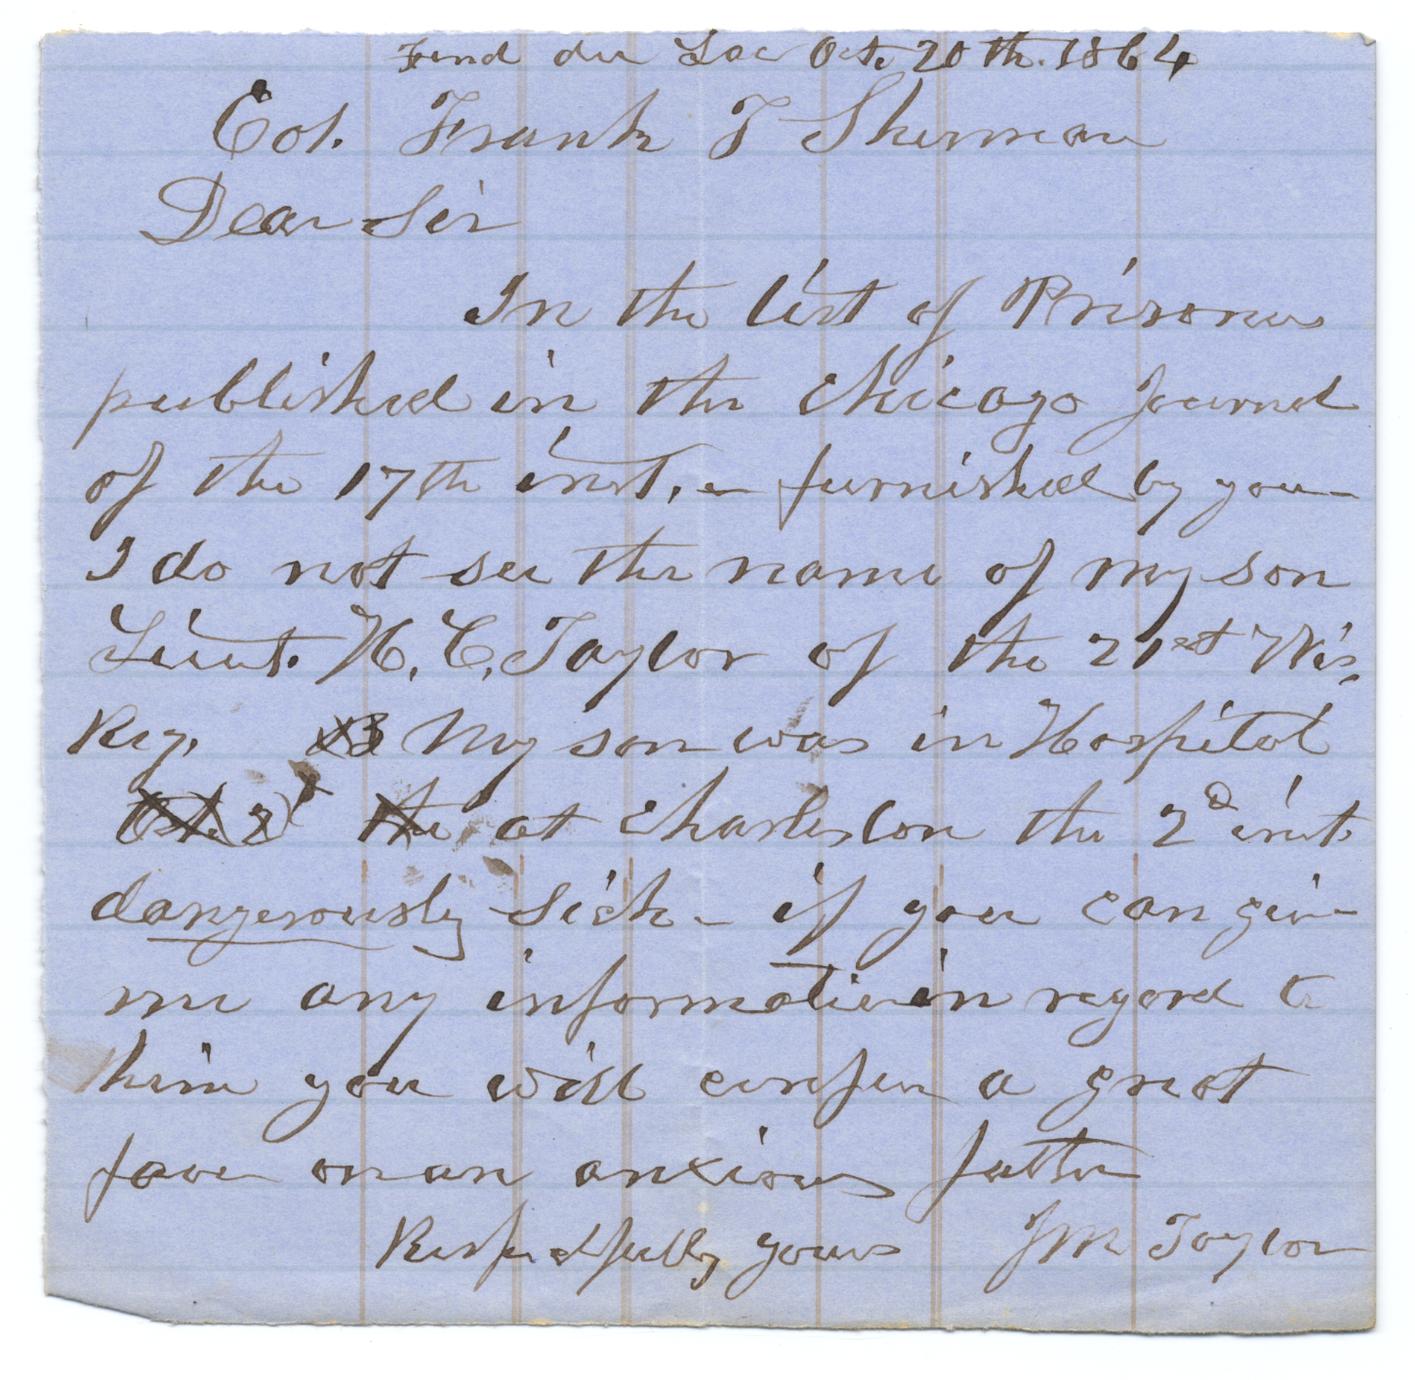 Fond du Lac Oct. 20th. 1864
Col. Frank T Sherman
Dear Sir
In the list of Prisoners
published in the Chicago Journal
of the 17th inst. – furnished by you –
I do not see the name of my son
Lieut. H. C. Taylor of the 21st Wis.
Reg. My son was in Hospital
Oct. 2d the at Charleston the 2d inst.
dangerously sick – if you can give
me any information in regard to
him you will confer a great
favor on an anxious father
Respectfully yours JM Taylor